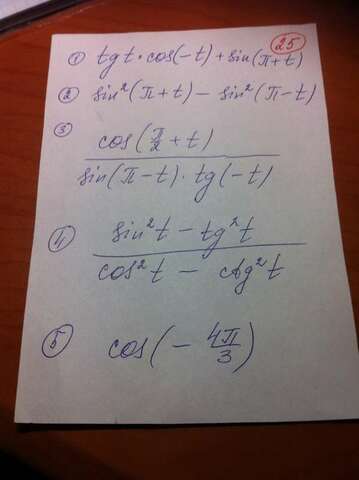 25
① tg t · cos(-t) + sin(π+t)
② sin²(π+t) - sin²(π-t)
③ cos(π/2 + t)
sin(π-t) · tg(-t)
4 sin²t - tg²t
cos²t - ctg²t
5 cos(- 4π/3)